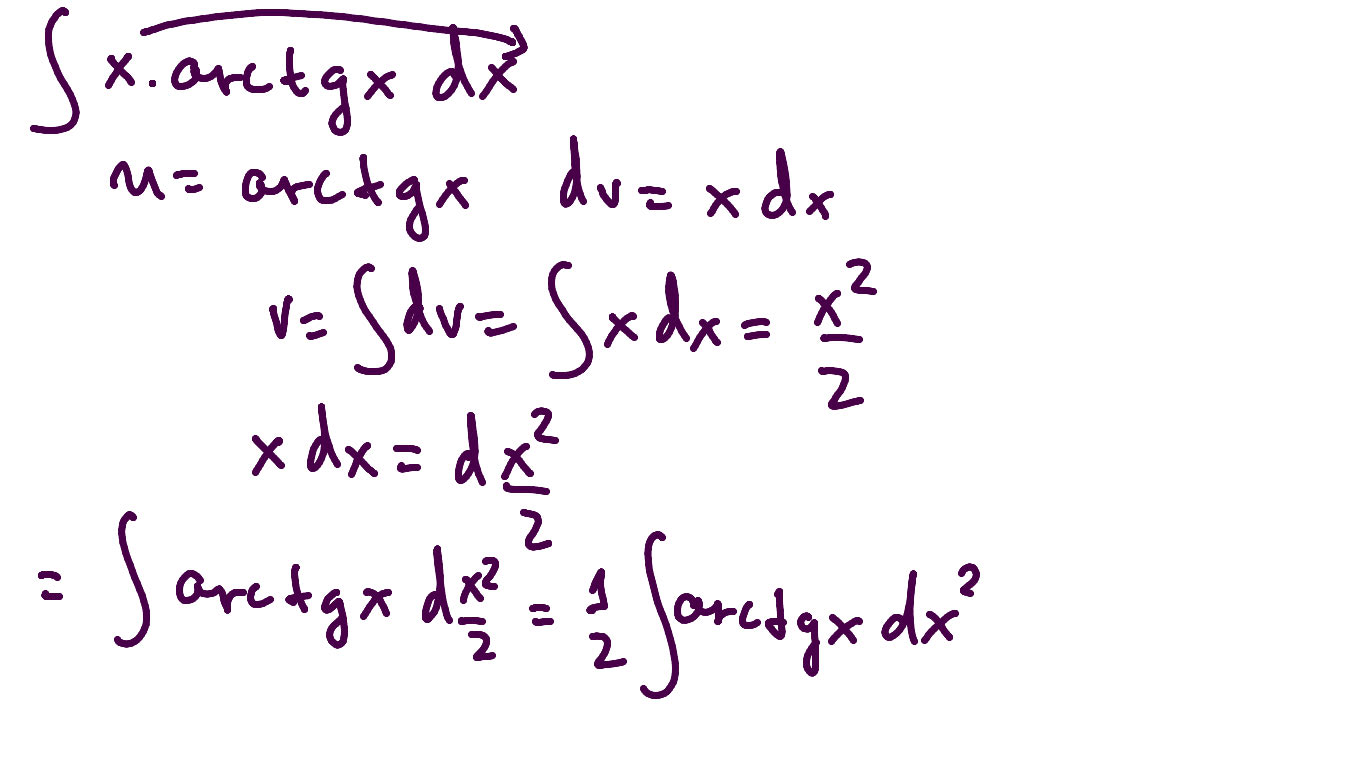 ∫ x. arctgx dx
u = arctgx dv = x dx
v = ∫ dv = ∫ x dx = x²/2
x dx = d x²/2
= ∫ arctgx d x²/2 = 1/2 ∫ arctgx dx²